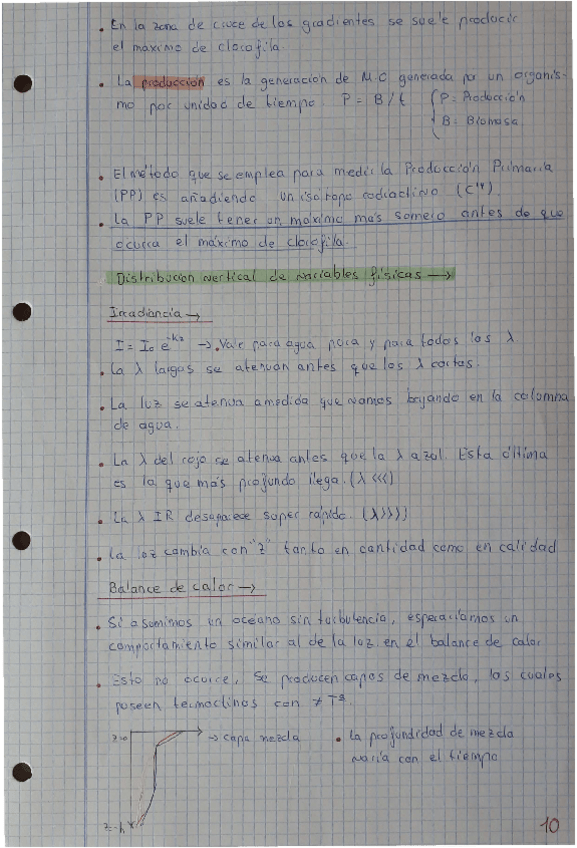 • En la zona de cruce de los gradientes se suele producir
el máximo de clorofila.
• La producción es la generación de M.O generada por un organis-
mo por unidad de tiempo P = B/t { P = Producción
B = Biomasa
• El método que se emplea para medir la Producción Primaria
(PP) es añadiendo un isótopo radiactivo (C¹⁴).
• La PP suele tener un máximo más somero antes de que
ocurra el máximo de clorofila.
Distribución vertical de variables físicas →
Irradiancia →
I = I₀ e^-kz → • Vale para agua pura y para todos los λ.
• La λ largas se atenúan antes que los λ cortas.
• La luz se atenúa a medida que vamos bajando en la columna
de agua.
• La λ del rojo se atenúa antes que la λ azul. Esta última
es la que más profundo llega. (λ <<<)
• La λ IR desaparece super rápido. (λ>>>)
• La luz cambia con "z" tanto en cantidad como en calidad
Balance de calor →
• Si asumimos un océano sin turbulencia, esperaríamos un
comportamiento similar al de la luz en el balance de calor
• Esto no ocurre, se producen capas de mezcla, las cuales
poseen termoclinas con ≠ Tª.
z=0 → capa mezcla
• La profundidad de mezcla
varía con el tiempo
z=-h
10